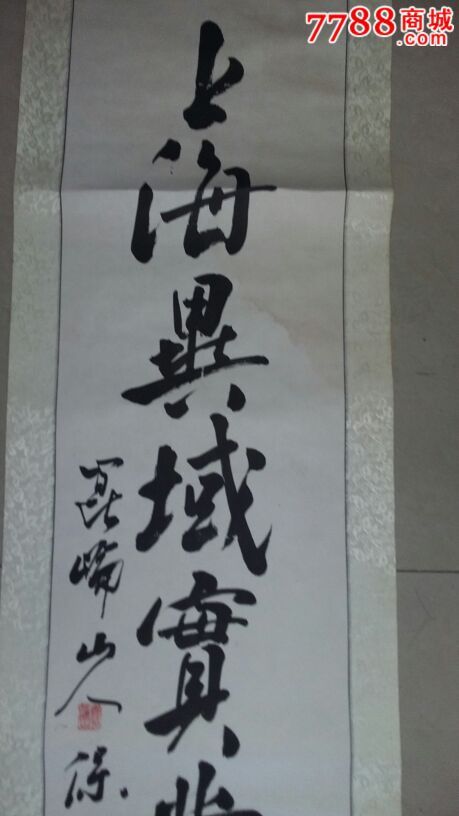 7788商城
.com
上海異域實
山人